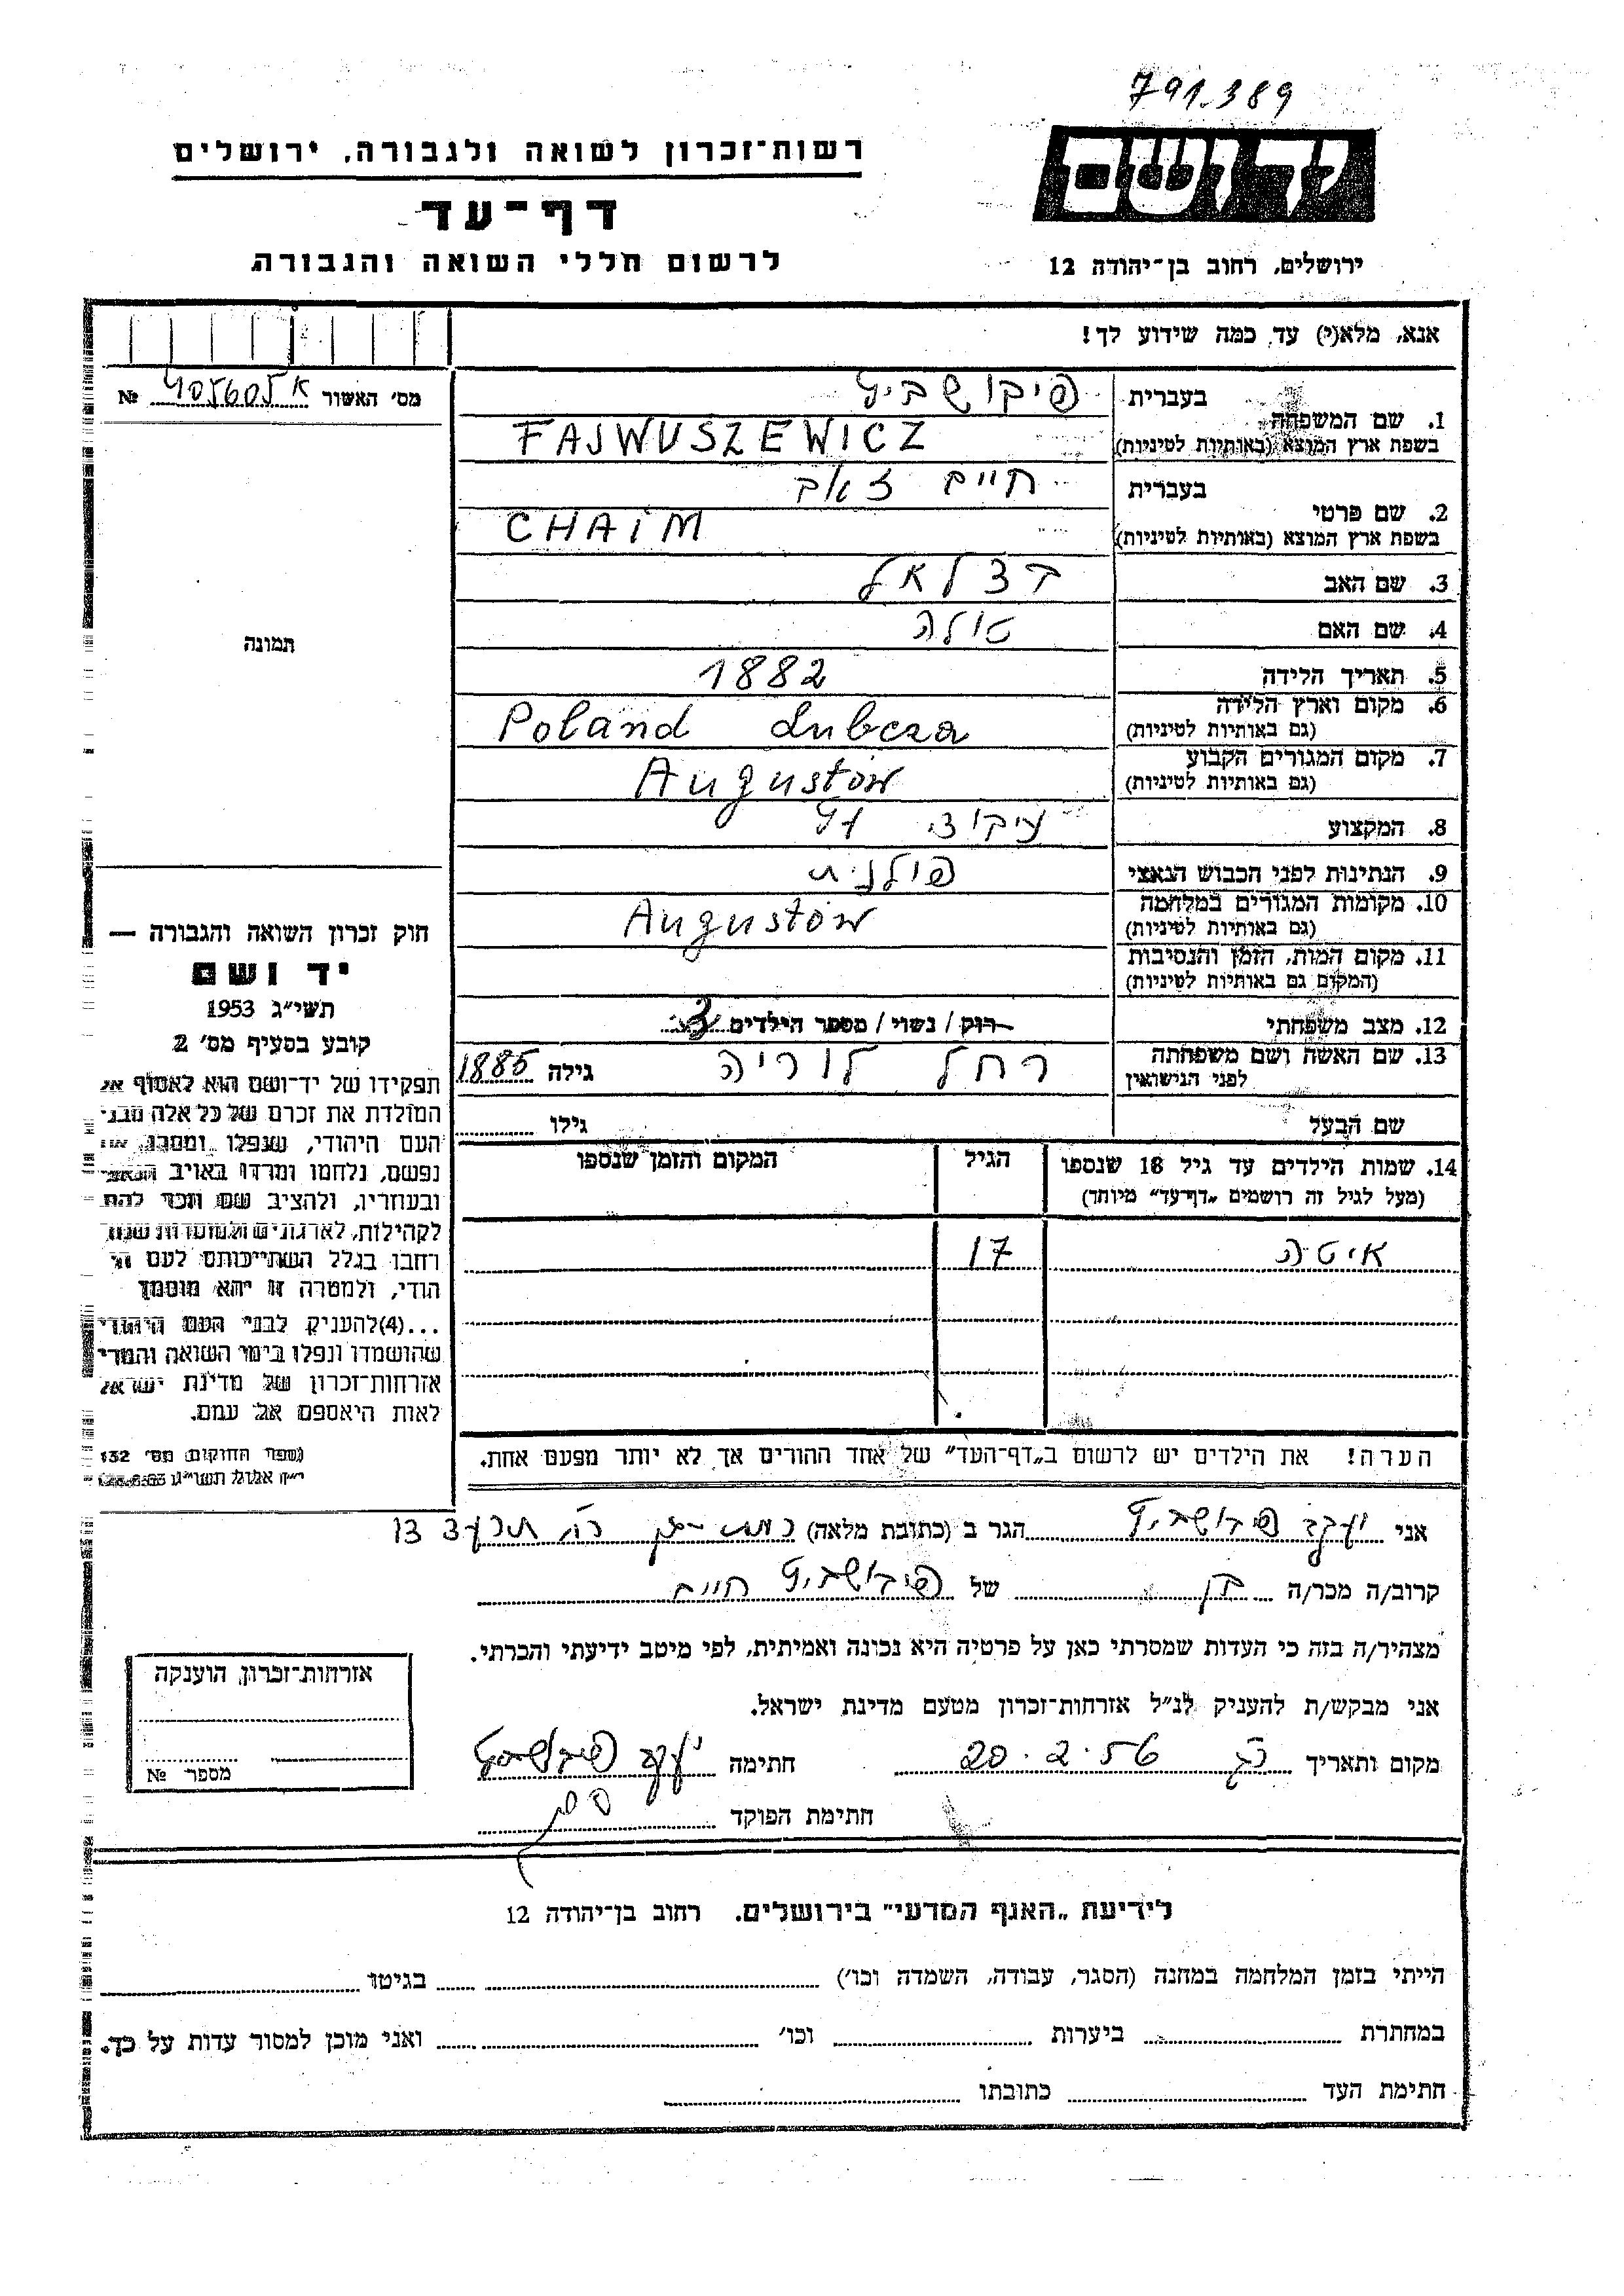 791.389
רשות־זכרון לשואה ולגבורה, ירושלים
יד ושם
דף־עד
לרשום חללי השואה והגבורה
ירושלים, רחוב בן־יהודה 12
אנא, מלא(י) עד כמה שידוע לך!
מס׳ האשור א 405605 №
תמונה
1. שם המשפחה בעברית
בשפת ארץ המוצא (באותיות לטיניות) FAJWUSZEWICZ
2. שם פרטי בעברית חיים זאב
בשפת ארץ המוצא (באותיות לטיניות) CHAIM
3. שם האב בצלאל
4. שם האם טולה
5. תאריך הלידה 1882
6. מקום וארץ הלידה Poland Lubcza
(גם באותיות לטיניות)
7. מקום המגורים הקבוע Augustów
(גם באותיות לטיניות)
8. המקצוע
9. הנתינות לפני הכבוש הנאצי פולנית
10. מקומות המגורים במלחמה Augustów
(גם באותיות לטיניות)
11. מקום המות, הזמן והנסיבות
(המקום גם באותיות לטיניות)
12. מצב משפחתי רוק / נשוי / מספר הילדים 3
13. שם האשה ושם משפחתה רחל לוריה גילה 1885
לפני הנישואין
שם הבעל גילו
14. שמות הילדים עד גיל 18 שנספו הגיל המקום והזמן שנספו
(מעל לגיל זה רושמים „דף־עד״ מיוחד)
איטה 17
הערה! את הילדים יש לרשום ב„דף־העד״ של אחד ההורים אך לא יותר מפעם אחת.
חוק זכרון השואה והגבורה —
יד ושם
תשי״ג 1953
קובע בסעיף מס׳ 2
תפקידו של יד־ושם הוא לאסוף אל
המולדת את זכרם של כל אלה מבני
העם היהודי, שנפלו ומסרו את
נפשם, נלחמו ומרדו באויב הנאצי
ובעוזריו, ולהציב שם וזכר להם
לקהילות, לארגונים ולמוסדות שנח
רחבו בגלל השתייכותם לעם הי
הודי, ולמטרה זו יהא מוסמך
...(4) להעניק לבני העם היהודי
שהושמדו ונפלו בימי השואה והמרי
אזרחות־זכרון של מדינת ישראל
לאות היאספם אל עמם.
(ספר החוקים מס׳ 132
אני יעקב הגר ב (כתובת מלאה) 13
קרוב/ה מכר/ה בן של חיים
מצהיר/ה בזה כי העדות שמסרתי כאן על פרטיה היא נכונה ואמיתית, לפי מיטב ידיעתי והכרתי.
אני מבקש/ת להעניק לנ״ל אזרחות־זכרון מטעם מדינת ישראל.
מקום ותאריך 20.2.56 חתימה יעקב
חתימת הפוקד
אזרחות־זכרון הוענקה
מספר №
לידיעת „האגף המדעי״ בירושלים. רחוב בן־יהודה 12
הייתי בזמן המלחמה במחנה (הסגר, עבודה, השמדה וכו׳) בגיטו
במחתרת ביערות וכו׳ ואני מוכן למסור עדות על כך.
חתימת העד כתובתו